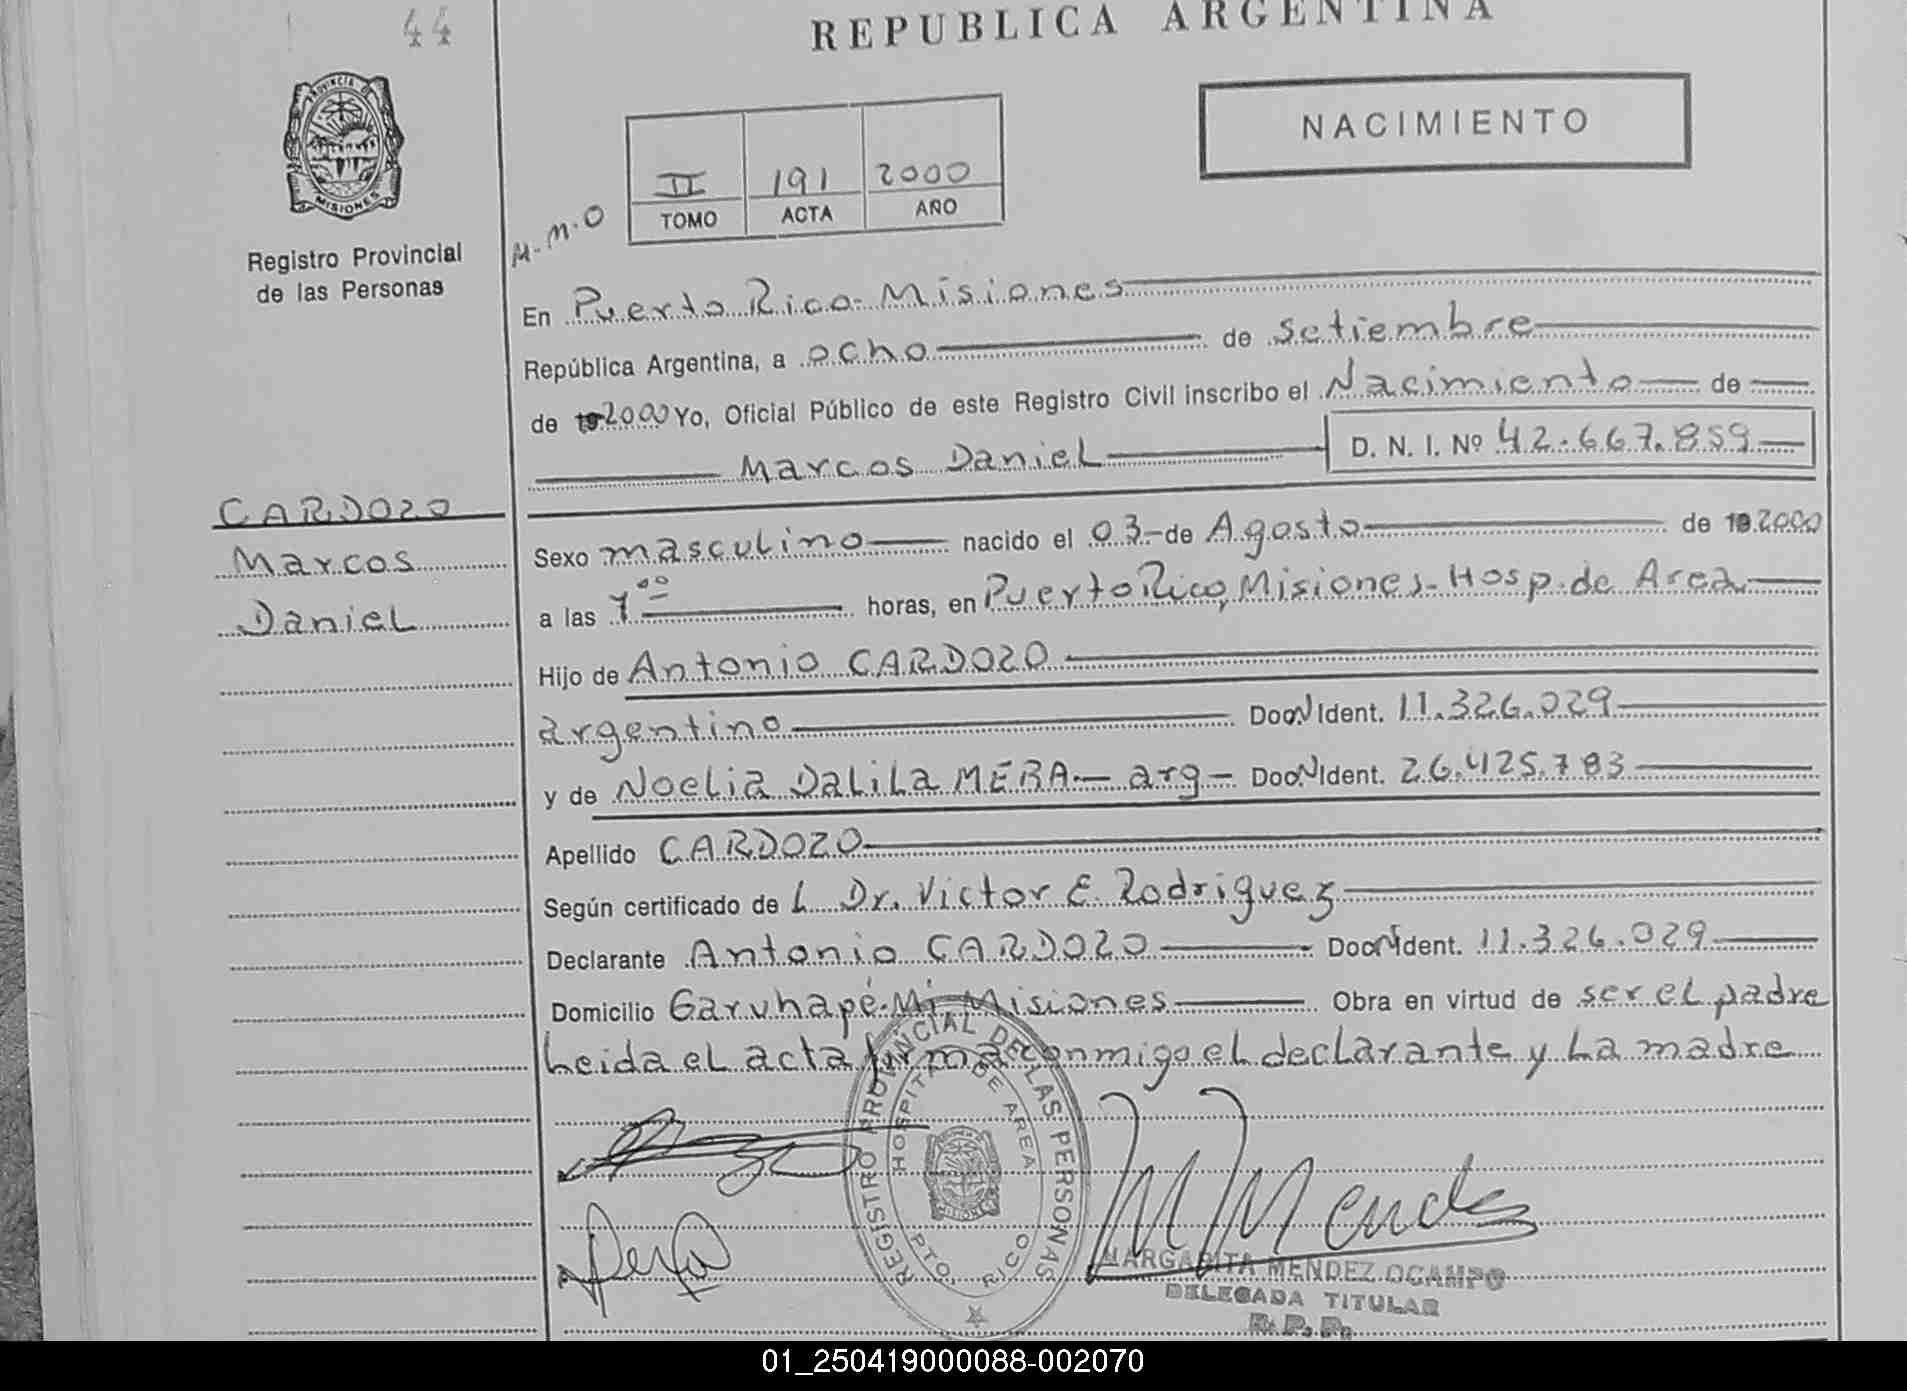 44
REPUBLICA ARGENTINA
PROVINCIA DE
MISIONES
Registro Provincial
de las Personas
NACIMIENTO
II 191 2000
TOMO ACTA AÑO
M.M.O
En Puerto Rico - Misiones
República Argentina, a ocho de setiembre
de 19 2000 Yo, Oficial Público de este Registro Civil inscribo el Nacimiento de
Marcos Daniel D. N. I. Nº 42.667.859
CARDOZO
Marcos
Daniel
Sexo masculino nacido el 03 de Agosto de 19 2000
a las 7 00 horas, en Puerto Rico, Misiones - Hosp. de Area
Hijo de Antonio CARDOZO
argentino Doc. N Ident. 11.326.029
y de Noelia Dalila MERA - arg - Doc. N Ident. 26.425.783
Apellido CARDOZO
Según certificado de L Dr. Victor E. Rodriguez
Declarante Antonio CARDOZO Doc. N Ident. 11.326.029
Domicilio Garuhapé-Mi Misiones Obra en virtud de ser el padre
Leida el acta firma conmigo el declarante y la madre
REGISTRO PROVINCIAL DE LAS PERSONAS
HOSPITAL DE AREA
PTO. RICO
M Mendez
MARGARITA MENDEZ OCAMPO
DELEGADA TITULAR
R. P. P.
01_250419000088-002070